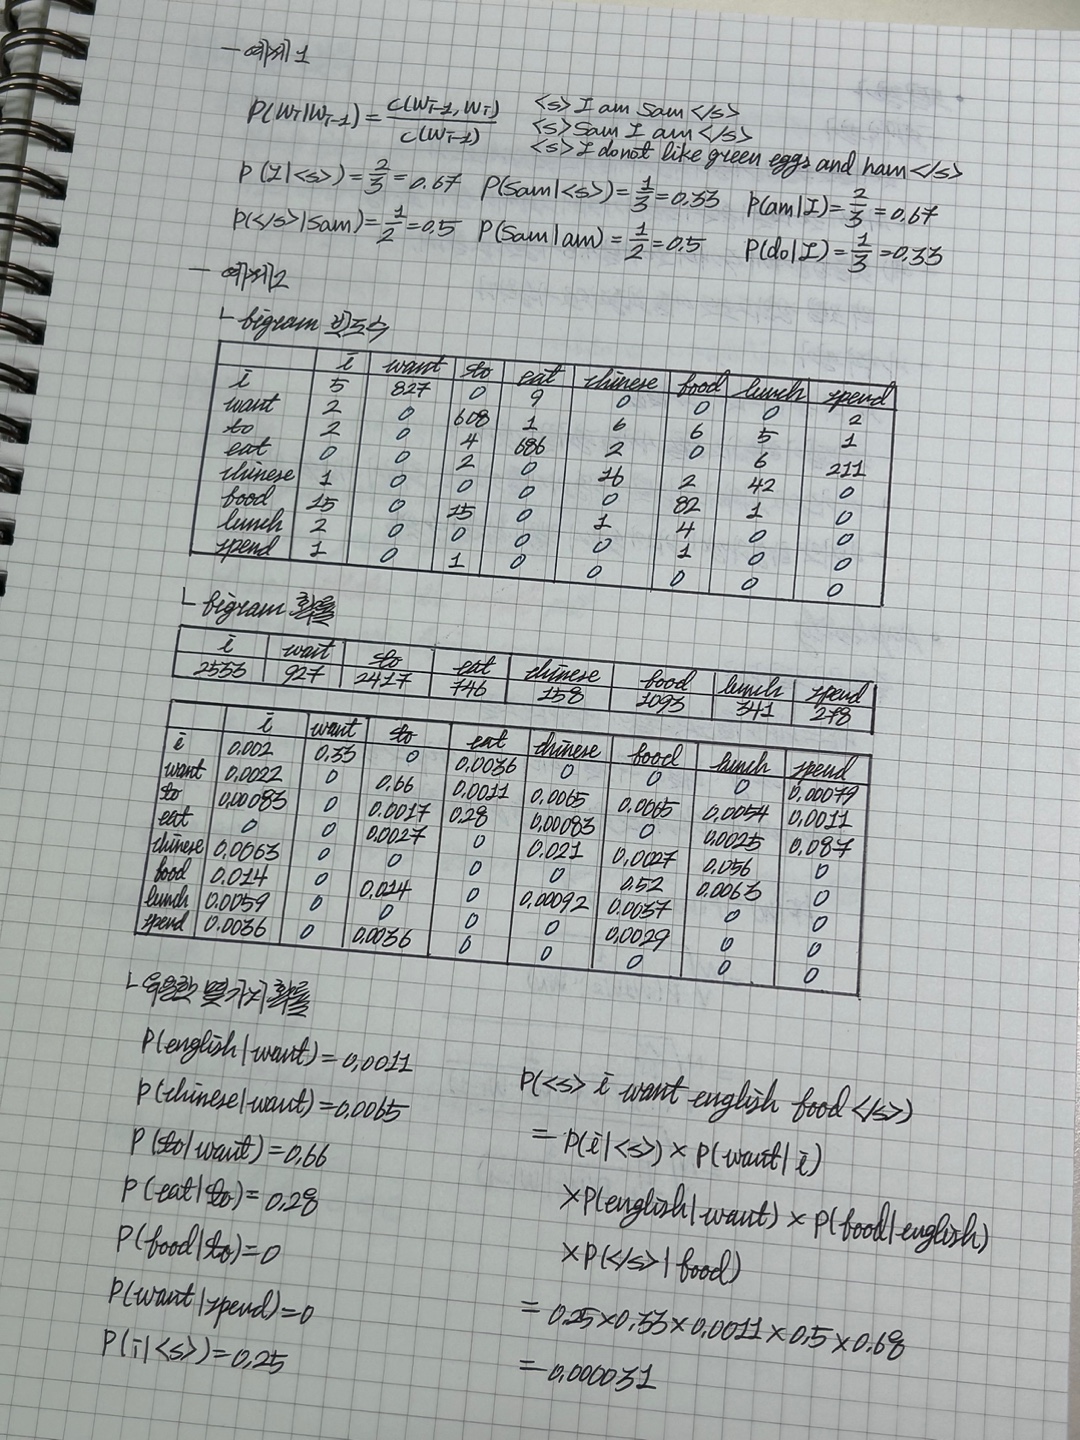 - 예제1
P(Wi|Wi-1) = C(Wi-1, Wi) / C(Wi-1)
<s> I am Sam </s>
<s> Sam I am </s>
<s> I do not like green eggs and ham </s>
P(I|<s>) = 2/3 = 0.67 P(Sam|<s>) = 1/3 = 0.33 P(am|I) = 2/3 = 0.67
P(</s>|Sam) = 1/2 = 0.5 P(Sam|am) = 1/2 = 0.5 P(do|I) = 1/3 = 0.33
- 예제2
ㄴ bigram 빈도수
i want to eat chinese food lunch spend
i 5 827 0 9 0 0 0 2
want 2 0 608 1 6 6 5 1
to 2 0 4 686 2 0 6 211
eat 0 0 2 0 16 2 42 0
chinese 1 0 0 0 0 82 1 0
food 15 0 15 0 1 4 0 0
lunch 2 0 0 0 0 1 0 0
spend 1 0 1 0 0 0 0 0
ㄴ bigram 확률
i want to eat chinese food lunch spend
2533 927 2417 746 158 1093 341 278
i want to eat chinese food lunch spend
i 0.002 0.33 0 0.0036 0 0 0 0.00079
want 0.0022 0 0.66 0.0011 0.0065 0.0065 0.0054 0.0011
to 0.00083 0 0.0017 0.28 0.00083 0 0.0025 0.087
eat 0 0 0.0027 0 0.021 0.0027 0.056 0
chinese 0.0063 0 0 0 0 0.52 0.0063 0
food 0.014 0 0.014 0 0.00092 0.0037 0 0
lunch 0.0059 0 0 0 0 0.0029 0 0
spend 0.0036 0 0.0036 0 0 0 0 0
ㄴ 유용한 몇가지 확률
P(english|want) = 0.0011
P(chinese|want) = 0.0065
P(to|want) = 0.66
P(eat|to) = 0.28
P(food|to) = 0
P(want|spend) = 0
P(i|<s>) = 0.25
P(<s> i want english food </s>)
= P(i|<s>) × P(want|i)
×P(english|want) × P(food|english)
×P(</s>|food)
= 0.25×0.33×0.0011×0.5×0.68
= 0.000031